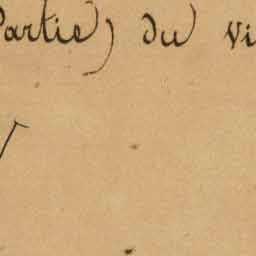 Partie) du vi